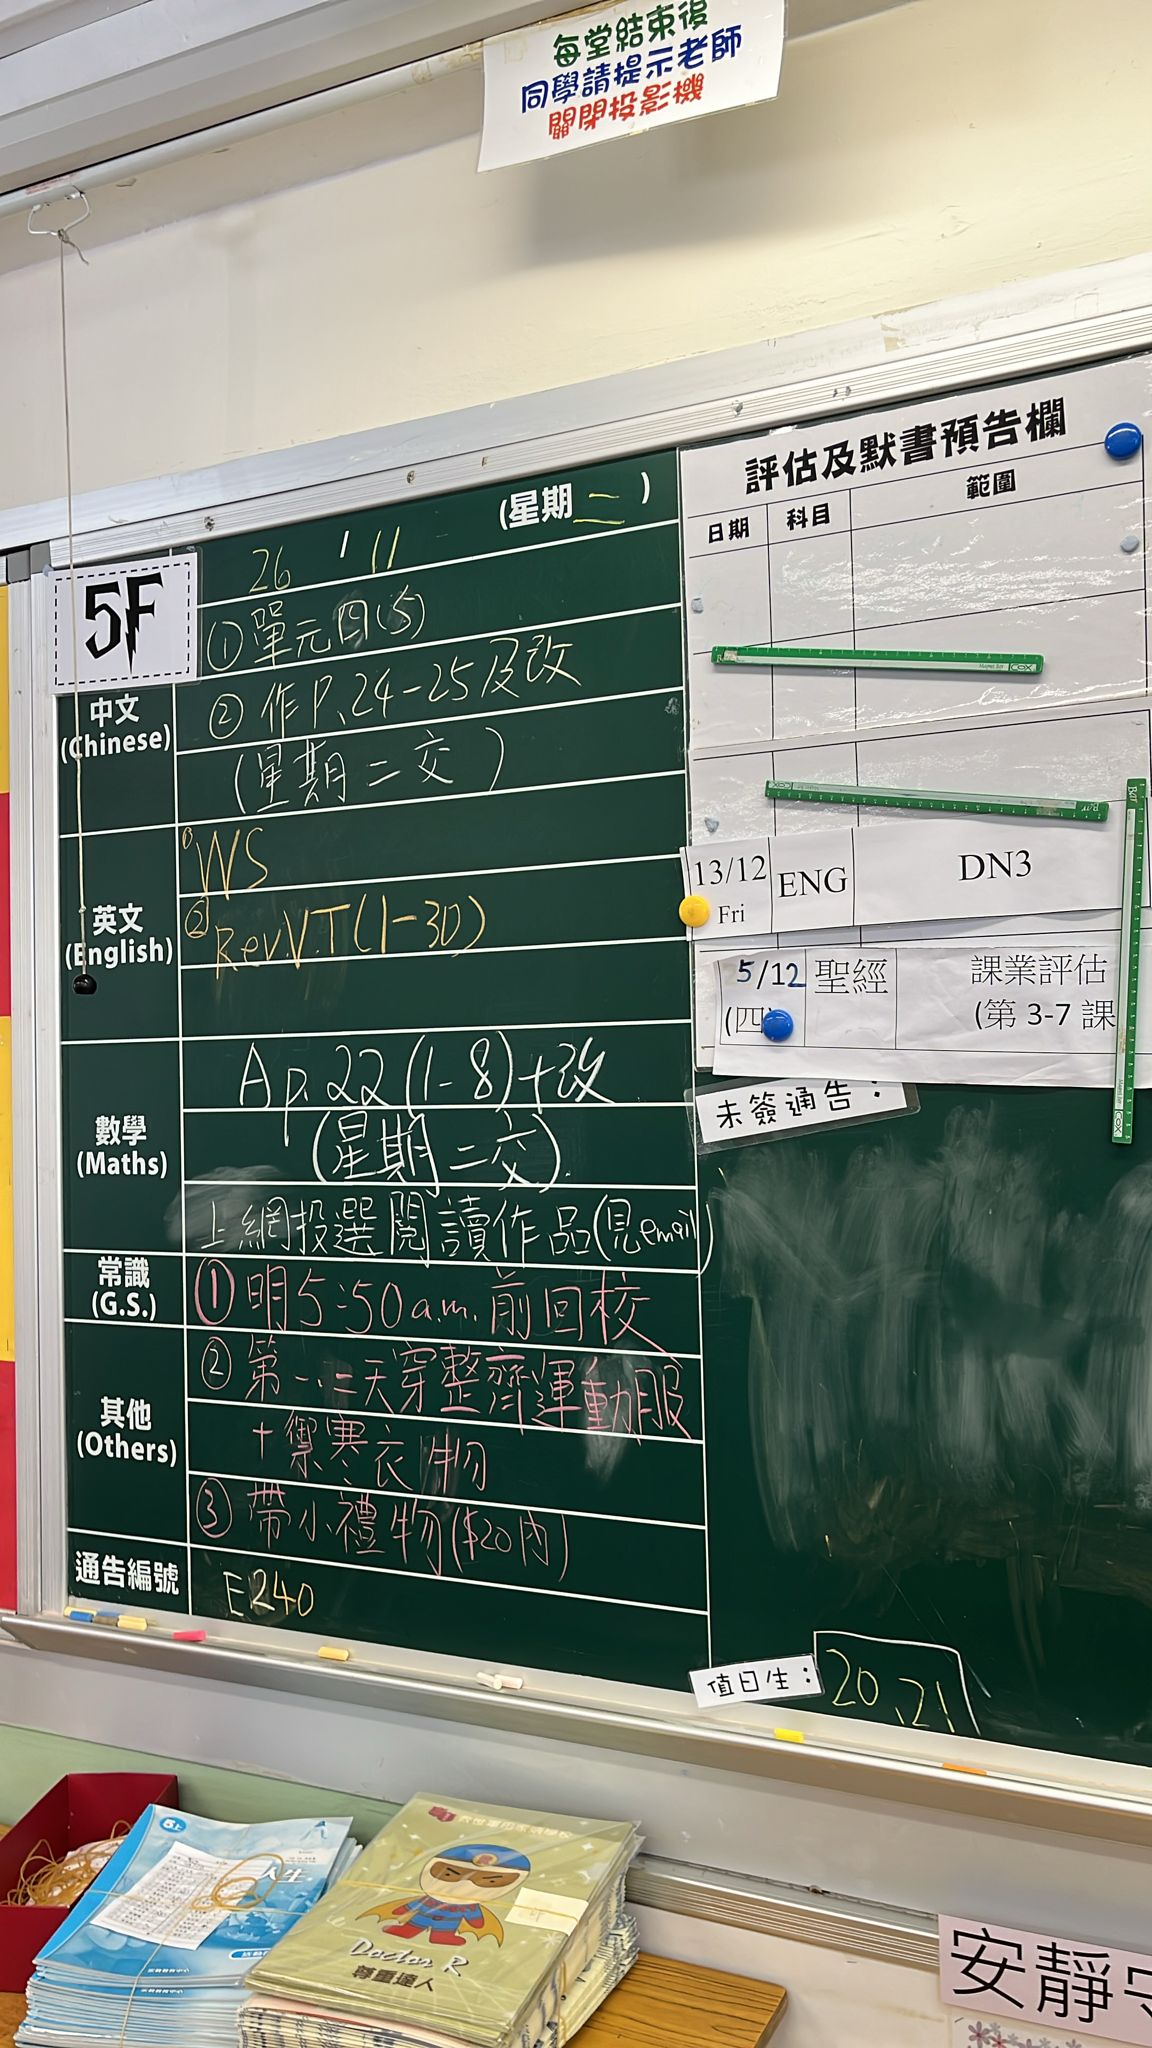 每堂結束後
同學請提示老師
關閉投影機
(星期二)
26 / 11
5F
中文
(Chinese)
①單元四(5)
②作P.24-25及改
(星期二交)
英文
(English)
①WS
②Rev.V.T(1-30)
數學
(Maths)
A p.22(1-8)+改
(星期二交).
上網投選閱讀作品(見email)
常識
(G.S.)
①明5:50a.m.前回校
其他
(Others)
②第一、二天穿整齊運動服
+禦寒衣物
③帶小禮物($20內)
通告編號
E240
評估及默書預告欄
日期 科目 範圍
13/12 ENG DN3
Fri
5/12 聖經 課業評估
(四) (第 3-7 課
未簽通告：
值日生：
20,21
5上
人生
Doctor R
尊重達人
安靜守